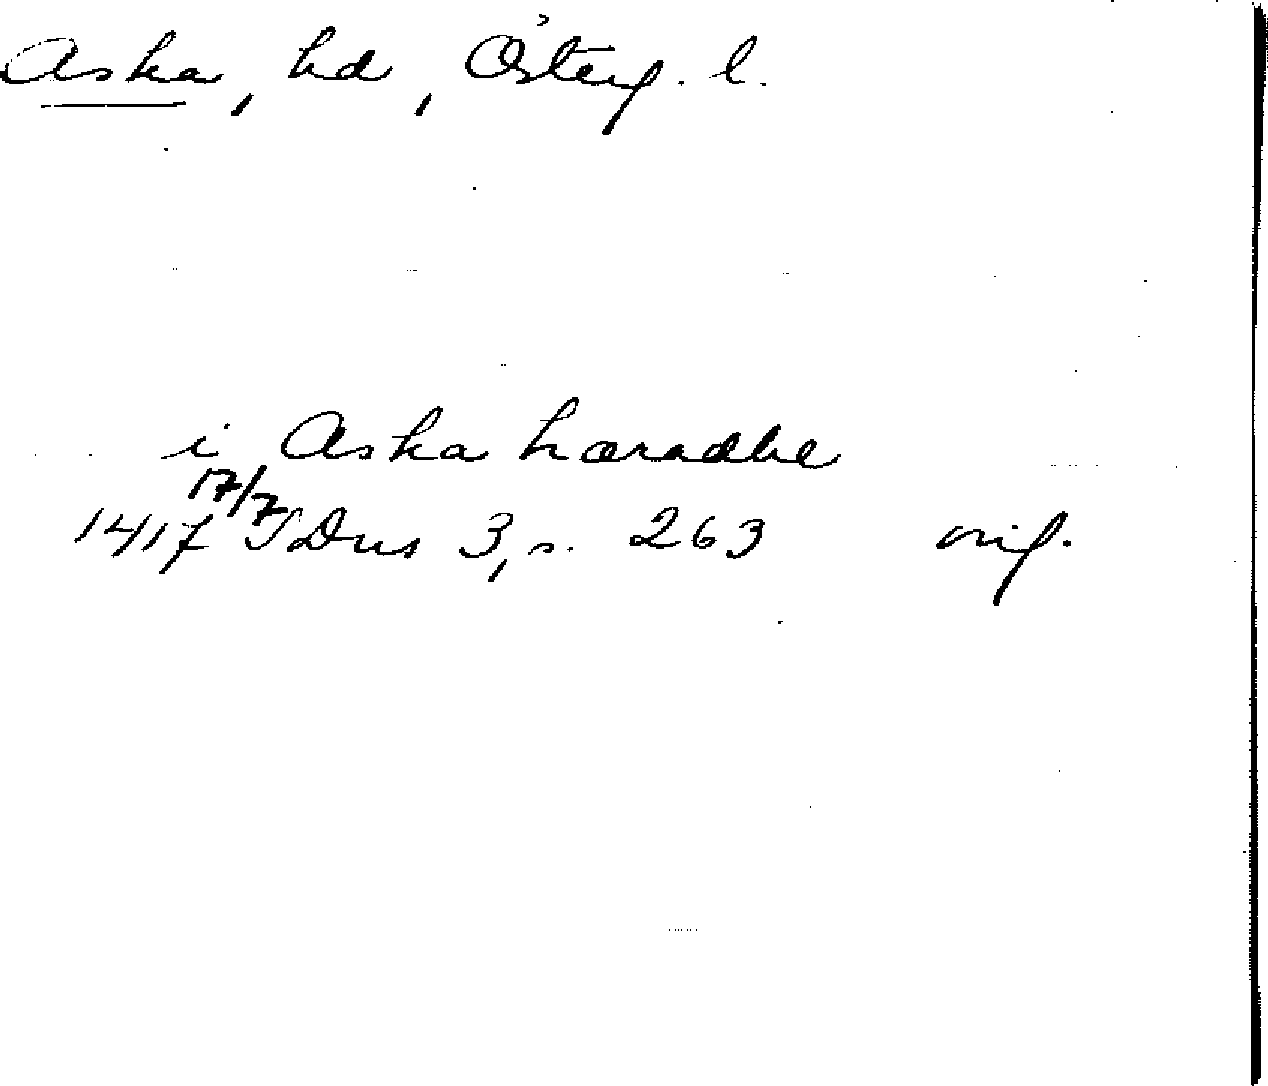 Aska, hd, Österg. l.
i Aska hæradhe
1417 17/7 SDns 3, s. 263 orig.